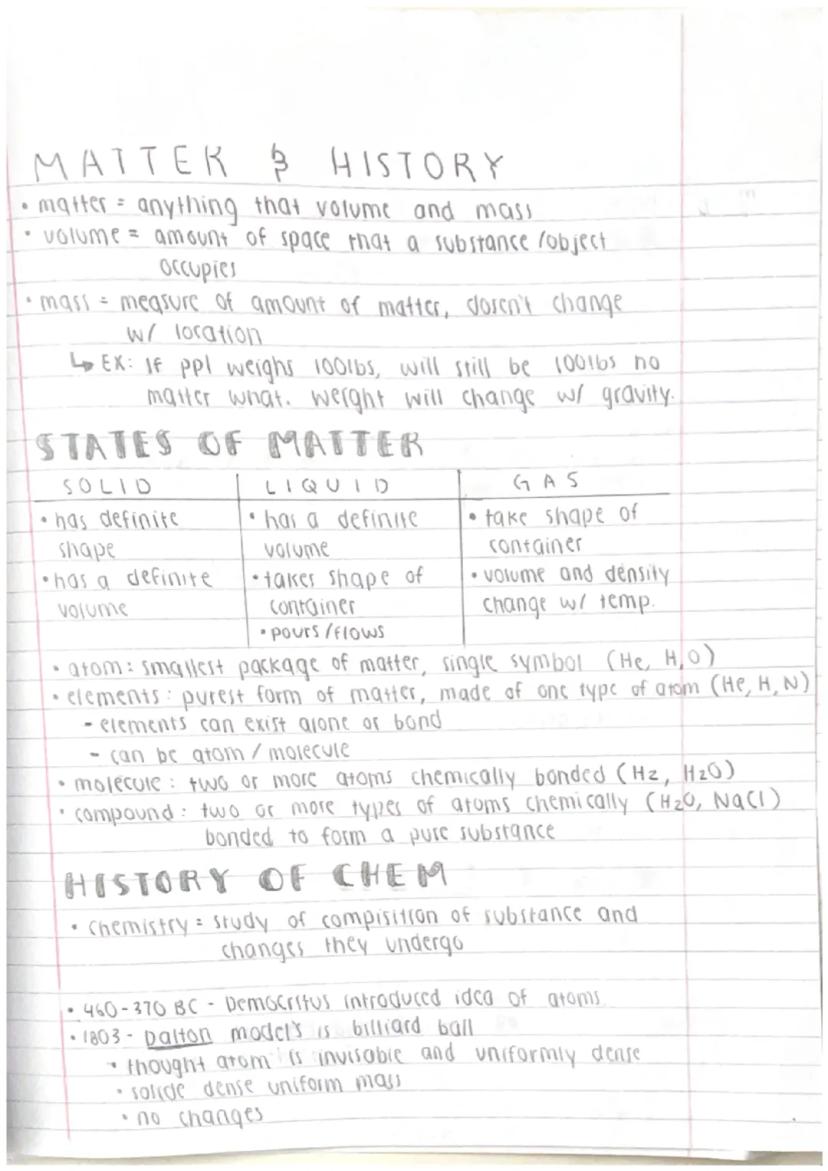 MATTER & HISTORY
• matter = anything that volume and mass
• volume = amount of space that a substance/object
occupies
• mass = measure of amount of matter, dosen't change
w/ location
↳ EX: If ppl weighs 100lbs, will still be 100lbs no
matter what. weight will change w/ gravity.
STATES OF MATTER
SOLID
• has definite
shape
• has a definite
volume
LIQUID
• has a definite
volume
• takes shape of
container
• pours/flows
GAS
• take shape of
container
• volume and density
change w/ temp.
• atom: smallest package of matter, single symbol (He, H, O)
• elements: purest form of matter, made of one type of atom (He, H, N)
- elements can exist alone or bond
- can be atom/molecule
• molecule: two or more atoms chemically bonded (H2, H2O)
• compound: two or more types of atoms chemically (H2O, NaCl)
bonded to form a pure substance
HISTORY OF CHEM
• chemistry = study of compisition of substance and
changes they undergo
• 460-370 BC - Democritus introduced idea of atoms
• 1803 - Dalton model's is billiard ball
• thought atom is invisable and uniformly dense
• solide dense uniform mass
• no changes